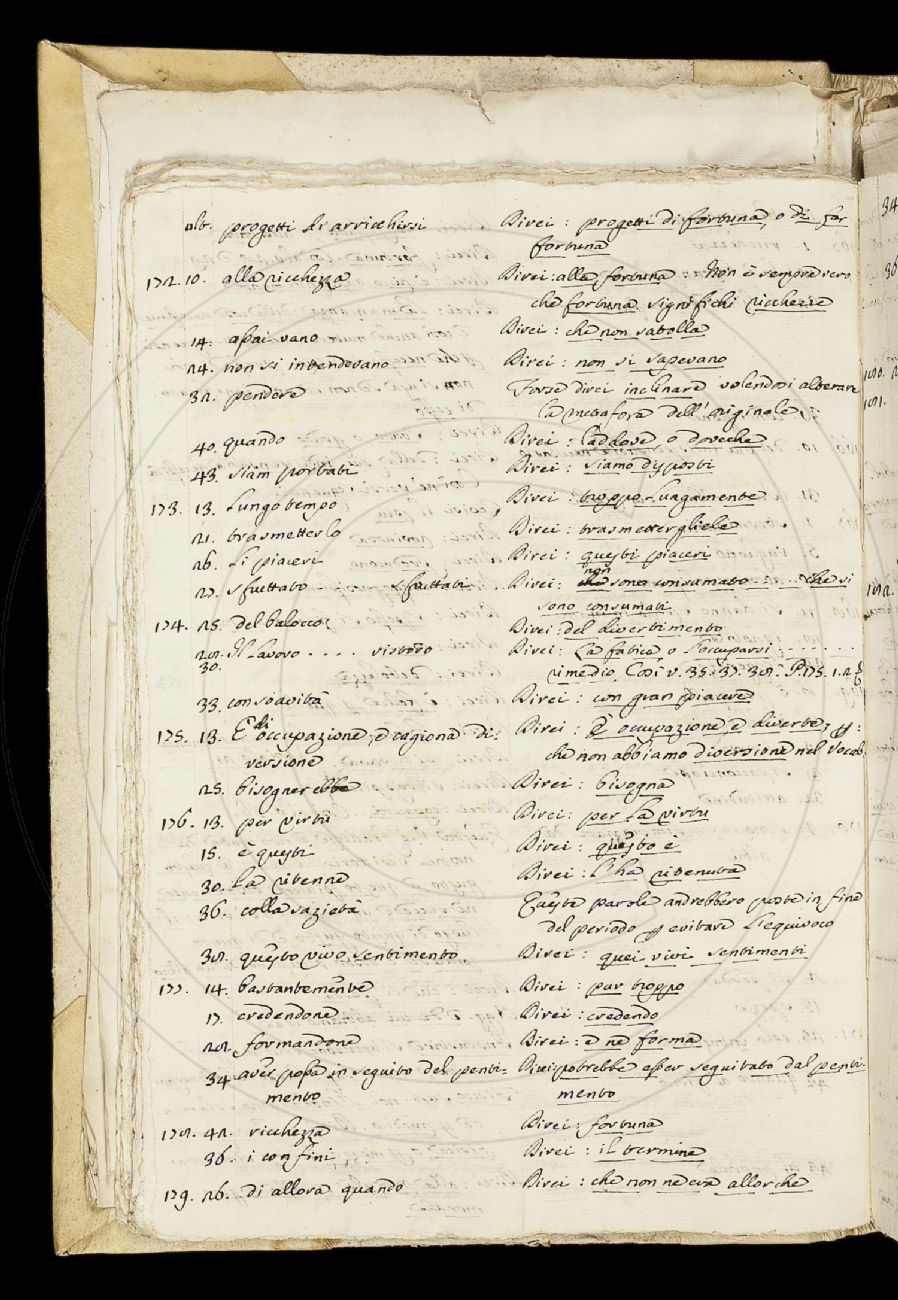 ult. progetti di arricchirsi Direi: progetti di fortuna, o di far
fortuna
172. 10. alla ricchezza Direi: alla fortuna: Non è sempre vero
che fortuna significhi ricchezze
14. assai vano Direi: che non satolla
24. non si intendevano Direi: non si sapevano
32. pendere Forse direi inclinare volendosi alterare
la metafora dell'originale
40. quando Direi: laddove, o doveche
43. siam portati Direi: siamo disposti
173. 13. Lungo tempo Direi: troppo Lungamente
21. trasmetterlo Direi: trasmettergliele
26. Li piaceri Direi: questi piaceri
27. sfruttato . . . . . sfruttati Direi: non sono consumato . . . . che si
sono consumati
174. 25. del balocco: Direi: del divertimento
28. Il Lavoro . . . . vistodo Direi: La fatica o L'occuparsi . . . . . . .
30. rimedio. Così v. 35. 37. 38. P. 175. 1. 2
33. con soavità Direi: con gran piacere
175. 13. È di occupazione, e cagiona di: Direi: È occupazione, e diverte;
versione che non abbiamo diversione nel Vocab
25. bisognerebbe Direi: bisogna
176. 13. per virtù Direi: per La virtù
15. è questi Direi: questo è
30. La ritenne Direi: l'ha ritenuta
36. colla sazietà Queste parole andrebbero poste in fine
del periodo evitare L'equivoco
38. questo vivo sentimento Direi: quei vivi sentimenti
177. 14. bastantemente Direi: pur troppo
17. credendone Direi: credendo
28. formandone Direi: e ne forma
34 aver possa in seguito del penti= Direi: potrebbe esser seguitato dal penti
mento mento
178. 42. ricchezza Direi: fortuna
36. i confini Direi: il termine
179. 26. di allora quando Direi: che non ne era allorche
34
36
180. 2
181.
182.